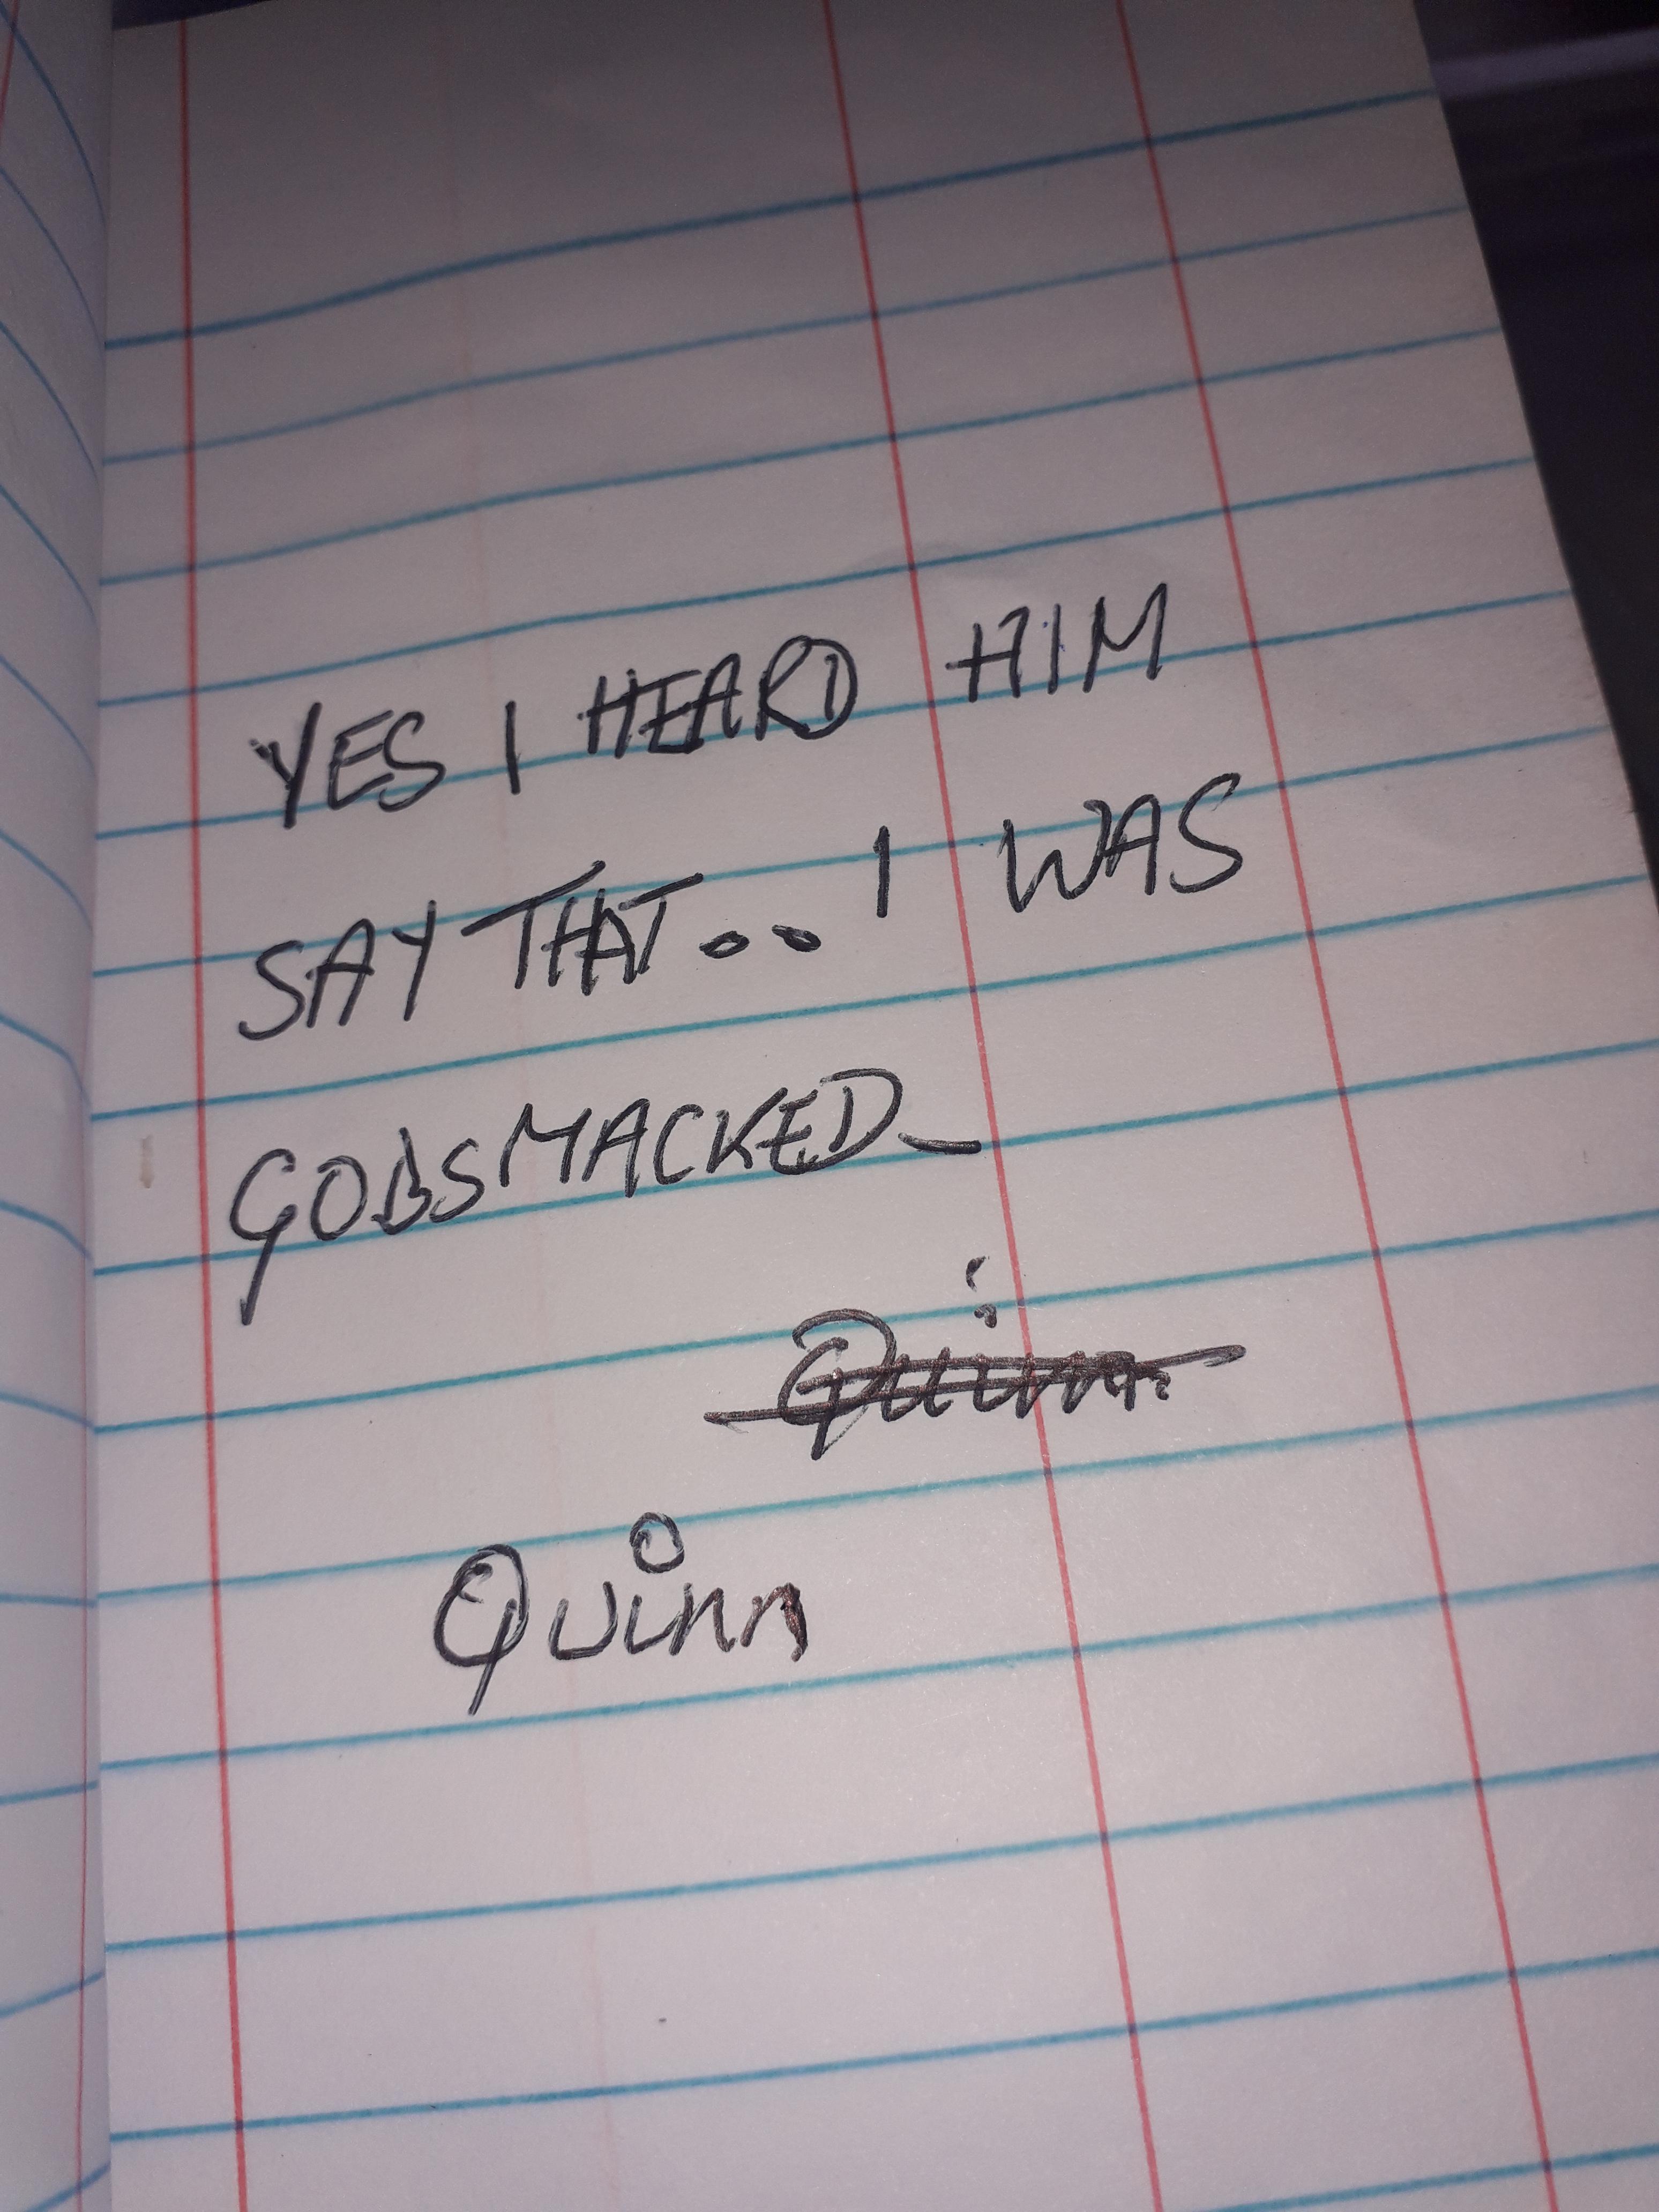 YES I HEARD HIM
SAY THAT.. I WAS
GOBSMACKED_
Quinn